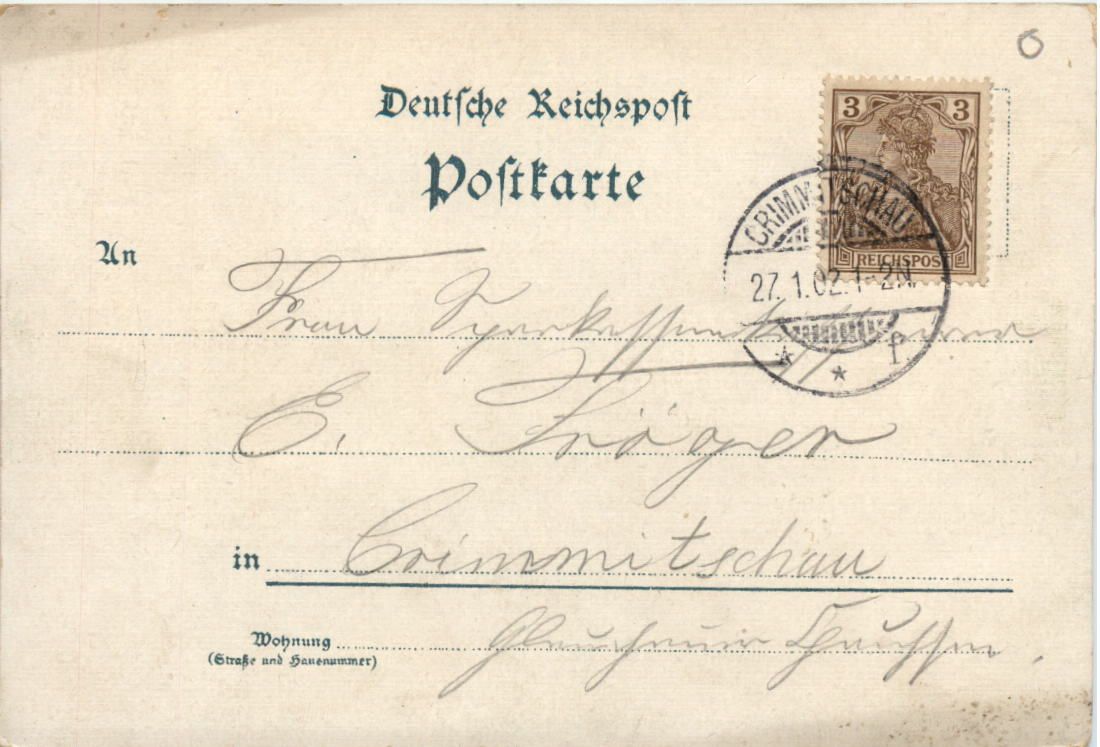 Deutsche Reichspost
Postkarte
3 3
REICHSPOST
CRIMMITSCHAU
27.1.02.1-2N.
* * f
An
Frau
E. Tröger
in Crimmitschau
Wohnung
(Straße und Hausnummer)
Glauchauer